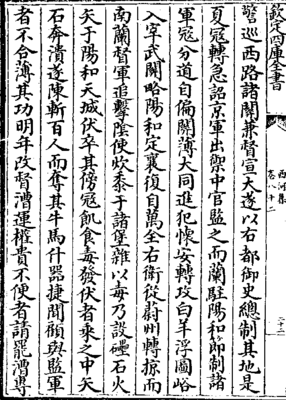 欽定四庫全書
西河集
卷八十二
警巡西路諸關兼督宣大遂以右都御史總制其地是
夏寇轉急詔京軍出禦中官監之而蘭駐陽和節制諸
軍寇分道自偏關薄大同進犯懷安轉攻白羊浮圖峪
入窄武關略陽和定襄復自萬全右衛從蔚州轉掠而
南蘭督軍追擊陰使炊黍于諸堡雜以毒乃設礧石火
矢于陽和天城伏卒其傍寇飢食毒發伏者乘之中矢
石奔潰遂陳斬百人而奪其牛馬什器捷聞顧與監軍
者不合薄其功明年改督漕運權貴不便者請罷漕專